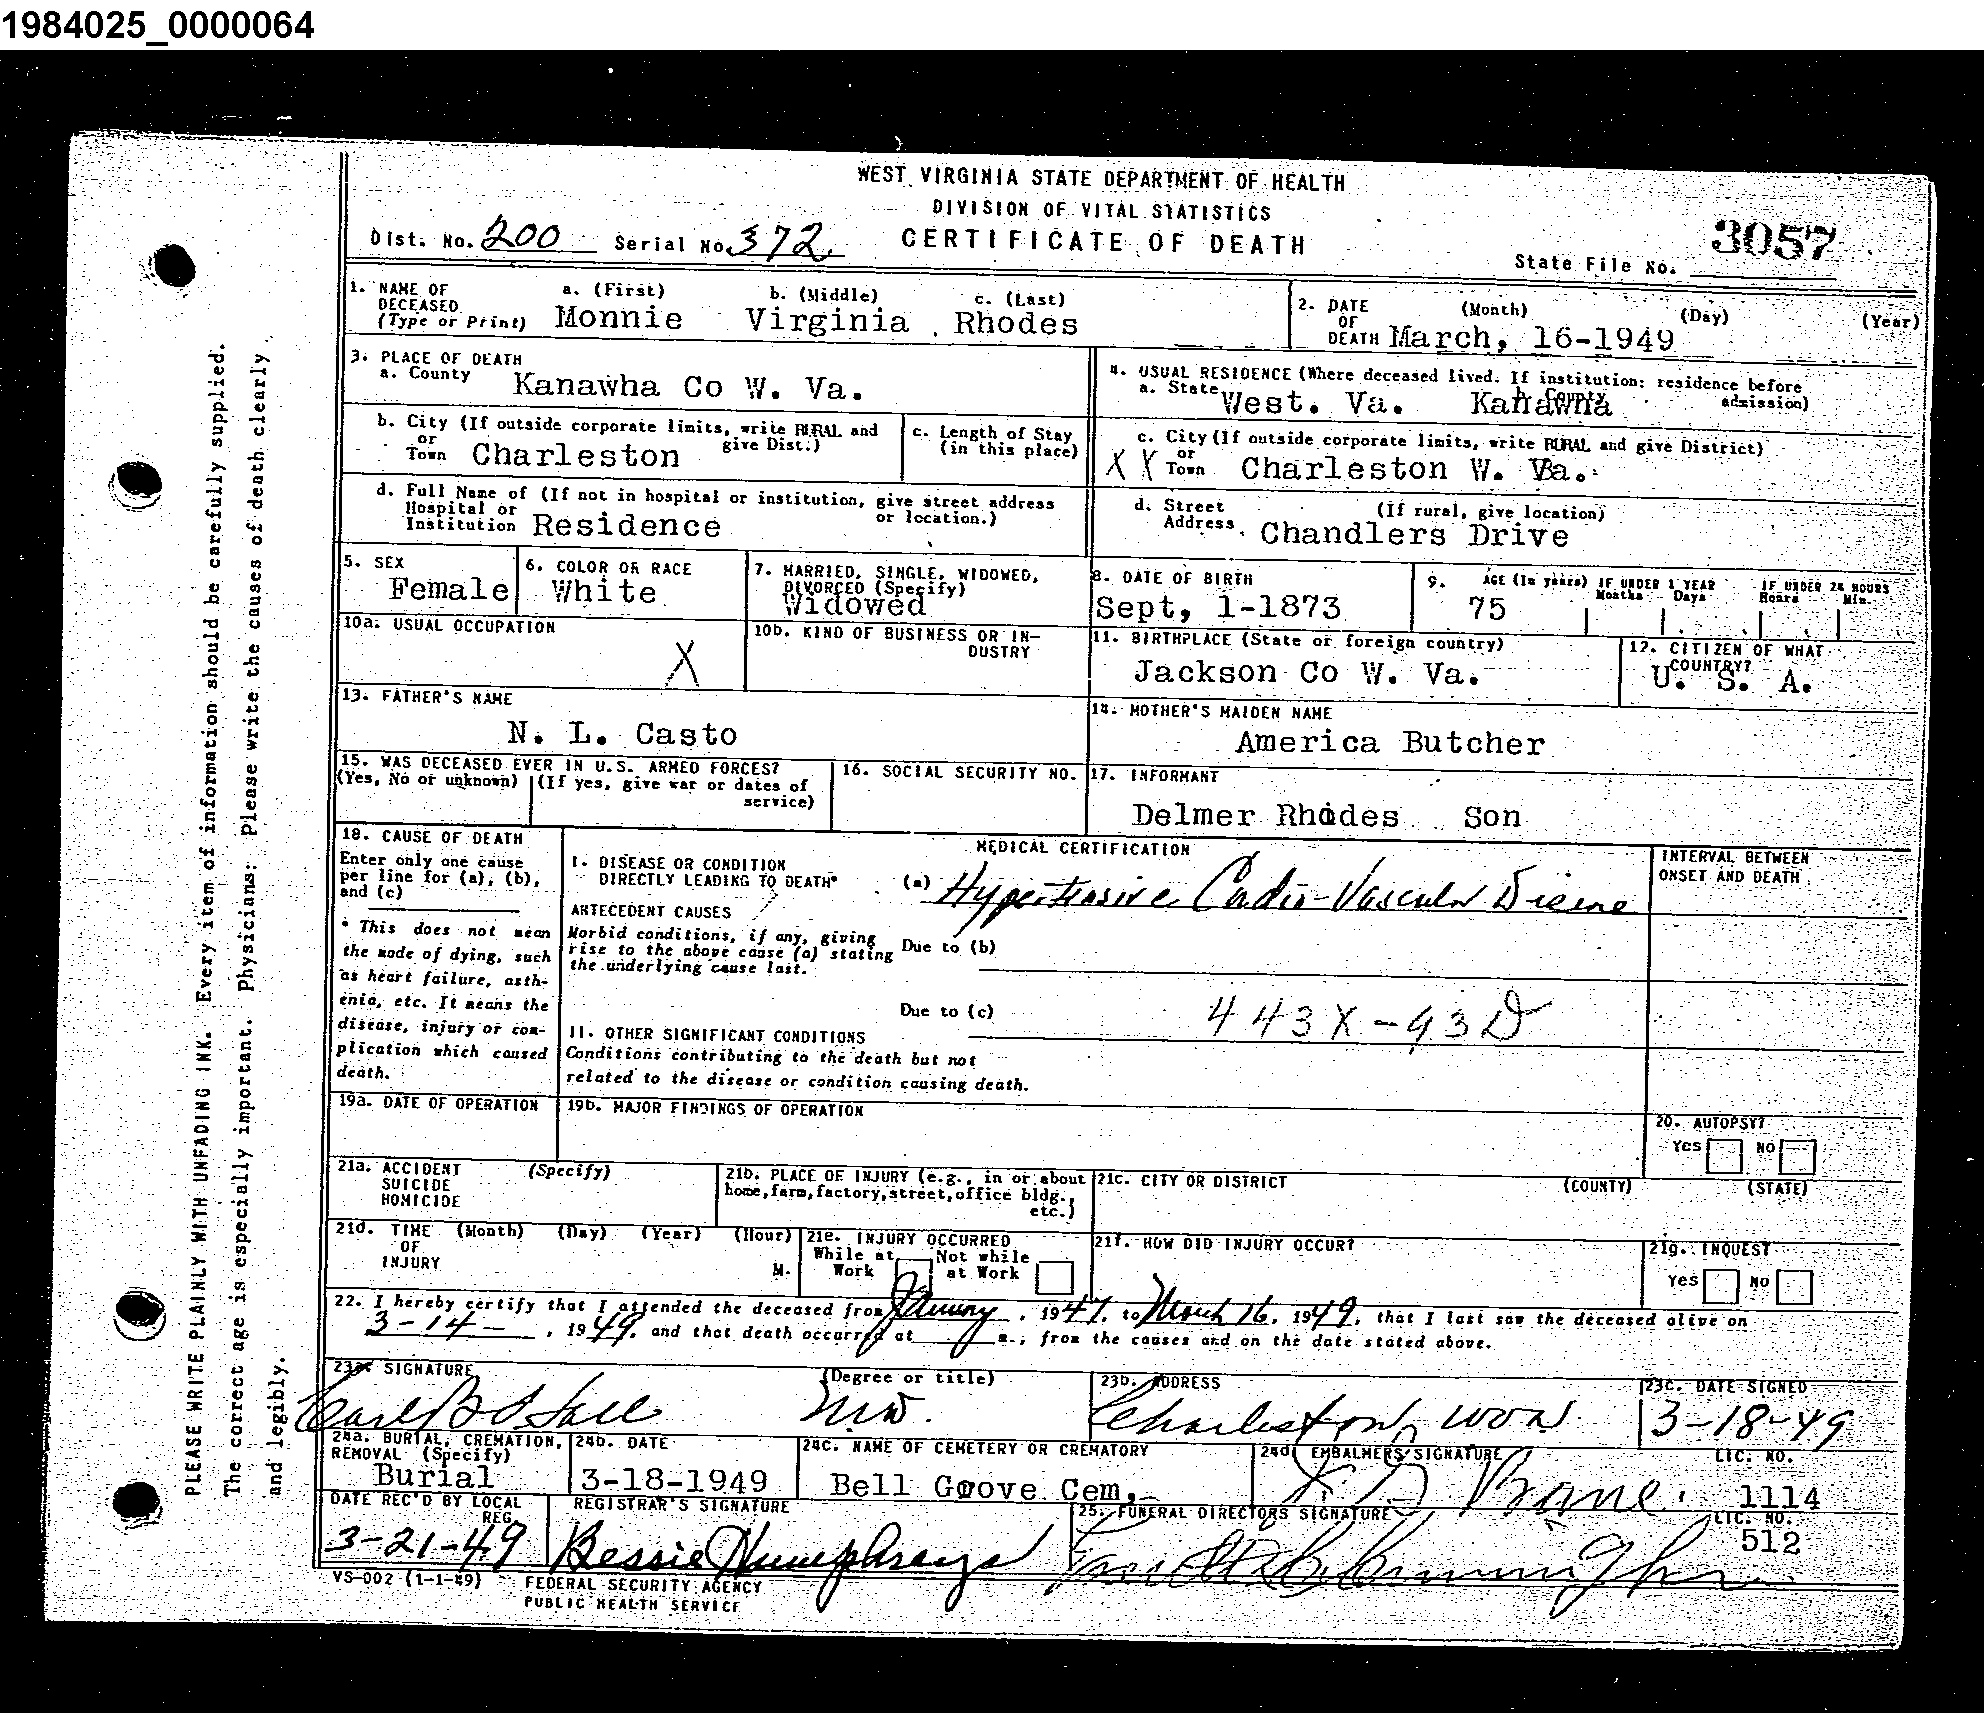 1984025_0000064
WEST VIRGINIA STATE DEPARTMENT OF HEALTH
DIVISION OF VITAL STATISTICS
Dist. No. 200 Serial No. 372 CERTIFICATE OF DEATH
3057
State File No.
1. NAME OF DECEASED (Type or Print) a. (First) b. (Middle) c. (Last)
Monnie Virginia Rhodes
2. DATE OF DEATH (Month) (Day) (Year)
March, 16-1949
3. PLACE OF DEATH
a. County Kanawha Co W. Va.
4. USUAL RESIDENCE (Where deceased lived. If institution: residence before admission)
a. State West. Va. b. County Kanawha
b. City (If outside corporate limits, write RURAL and give Dist.)
or Town Charleston
c. Length of Stay (in this place)
c. City (If outside corporate limits, write RURAL and give District)
X X or Town Charleston W. Va.
d. Full Name of (If not in hospital or institution, give street address or location.)
Hospital or Institution Residence
d. Street Address (If rural, give location)
Chandlers Drive
5. SEX
Female
6. COLOR OR RACE
White
7. MARRIED, SINGLE, WIDOWED, DIVORCED (Specify)
Widowed
8. DATE OF BIRTH
Sept, 1-1873
9. AGE (In years) IF UNDER 1 YEAR Months Days IF UNDER 24 HOURS Hours Min.
75
10a. USUAL OCCUPATION
X
10b. KIND OF BUSINESS OR INDUSTRY
11. BIRTHPLACE (State or foreign country)
Jackson Co W. Va.
12. CITIZEN OF WHAT COUNTRY?
U. S. A.
13. FATHER'S NAME
N. L. Casto
14. MOTHER'S MAIDEN NAME
America Butcher
15. WAS DECEASED EVER IN U.S. ARMED FORCES?
(Yes, No or unknown) (If yes, give war or dates of service)
16. SOCIAL SECURITY NO.
17. INFORMANT
Delmer Rhodes Son
18. CAUSE OF DEATH
Enter only one cause
per line for (a), (b),
and (c)
* This does not mean
the mode of dying, such
as heart failure, asth-
enia, etc. It means the
disease, injury or com-
plication which caused
death.
MEDICAL CERTIFICATION
I. DISEASE OR CONDITION
DIRECTLY LEADING TO DEATH* (a) Hypertensive Cardio-Vascular Disease
ANTECEDENT CAUSES
Morbid conditions, if any, giving
rise to the above cause (a) stating
the underlying cause last.
Due to (b)
Due to (c)
443X-93D
II. OTHER SIGNIFICANT CONDITIONS
Conditions contributing to the death but not
related to the disease or condition causing death.
INTERVAL BETWEEN
ONSET AND DEATH
19a. DATE OF OPERATION
19b. MAJOR FINDINGS OF OPERATION
20. AUTOPSY?
Yes No
21a. ACCIDENT (Specify)
SUICIDE
HOMICIDE
21b. PLACE OF INJURY (e.g., in or about
home, farm, factory, street, office bldg.,
etc.)
21c. CITY OR DISTRICT (COUNTY) (STATE)
21d. TIME (Month) (Day) (Year) (Hour)
OF
INJURY M.
21e. INJURY OCCURRED
While at Work Not while at Work
21f. HOW DID INJURY OCCUR?
21g. INQUEST
Yes No
22. I hereby certify that I attended the deceased from January, 1947, to March 16, 1949, that I last saw the deceased alive on
3-14-, 1949, and that death occurred at m., from the causes and on the date stated above.
23a. SIGNATURE (Degree or title)
Carl B Hall M.D.
23b. ADDRESS
Charleston, W Va
23c. DATE SIGNED
3-18-49
24a. BURIAL, CREMATION, REMOVAL (Specify)
Burial
24b. DATE
3-18-1949
24c. NAME OF CEMETERY OR CREMATORY
Bell Groove Cem,
24d. EMBALMERS' SIGNATURE LIC. NO.
Bane 1114
DATE REC'D BY LOCAL REG.
3-21-49
REGISTRAR'S SIGNATURE
Bessie Humphreys
25. FUNERAL DIRECTORS SIGNATURE LIC. NO.
Cunningham 512
VS-002 (1-1-49) FEDERAL SECURITY AGENCY
PUBLIC HEALTH SERVICE
PLEASE WRITE PLAINLY WITH UNFADING INK. Every item of information should be carefully supplied.
The correct age is especially important. Physicians: Please write the causes of death clearly
and legibly.